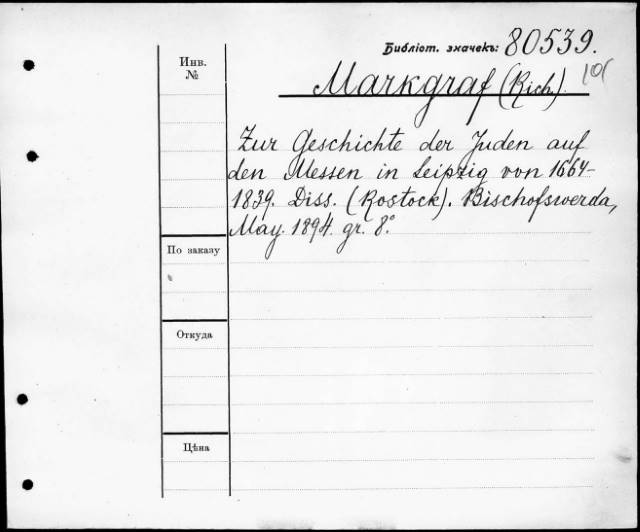 Библіот. значекъ: 80539.
Инв.
№
Markgraf (Rich.).
Zur Geschichte der Juden auf
den Messen in Leipzig von 1664-
1839. Diss. (Rostock). Bischofswerda,
May. 1894. gr. 8.°
По заказу
Откуда
Цѣна